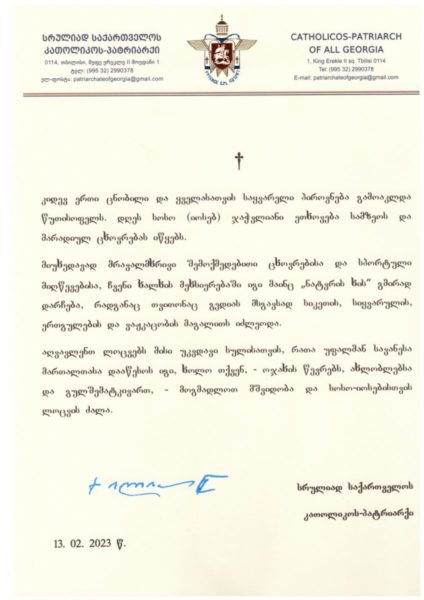 სრულიად საქართველოს
კათოლიკოს-პატრიარქი
0114, თბილისი, მეფე ერეკლე II მოედანი 1
ტელ: (995 32) 2990378
ელ-ფოსტა: patriarchateofgeorgia@gmail.com
CATHOLICOS-PATRIARCH
OF ALL GEORGIA
1, King Erekle II sq. Tbilisi 0114
Tel: (995 32) 2990378
E-mail: patriarchateofgeorgia@gmail.com
კიდევ ერთი ცნობილი და ყველასათვის საყვარელი პიროვნება გამოაკლდა
წუთისოფელს. დღეს სოსო (იოსებ) ჯაჭვლიანი ეთხოვება სამზეოს და
მარადიულ ცხოვრებას იწყებს.
მიუხედავად მრავალმხრივი შემოქმედებითი ცხოვრებისა და სპორტული
მიღწევებისა, ჩვენი ხალხის მეხსიერებაში იგი მაინც „ნატვრის ხის“ გმირად
დარჩება, რადგანაც თვითონაც გედიას მსგავსად სიკეთის, სიყვარულის,
ერთგულების და ვაჟკაცობის მაგალითს იძლეოდა.
აღვავლენთ ლოცვებს მისი უკვდავი სულისათვის, რათა უფალმან სავანესა
მართალთასა დააწესოს იგი, ხოლო თქვენ, - ოჯახის წევრებს, ახლობლებსა
და გულშემატკივართ, - მოგმადლოთ მშვიდობა და სოსო-იოსებისთვის
ლოცვის ძალა.
სრულიად საქართველოს
კათოლიკოს-პატრიარქი
13. 02. 2023 წ.